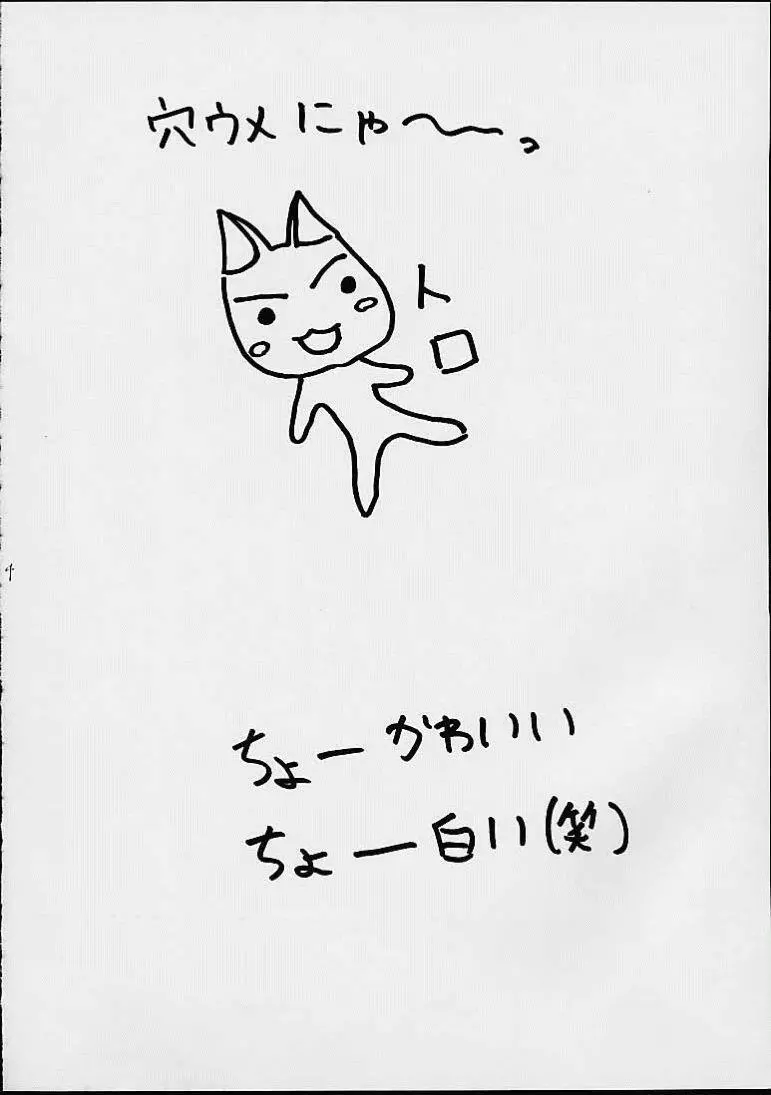 穴ウメにゃ〜っ
トロ
ちょーかわいい
ちょー白い(笑)